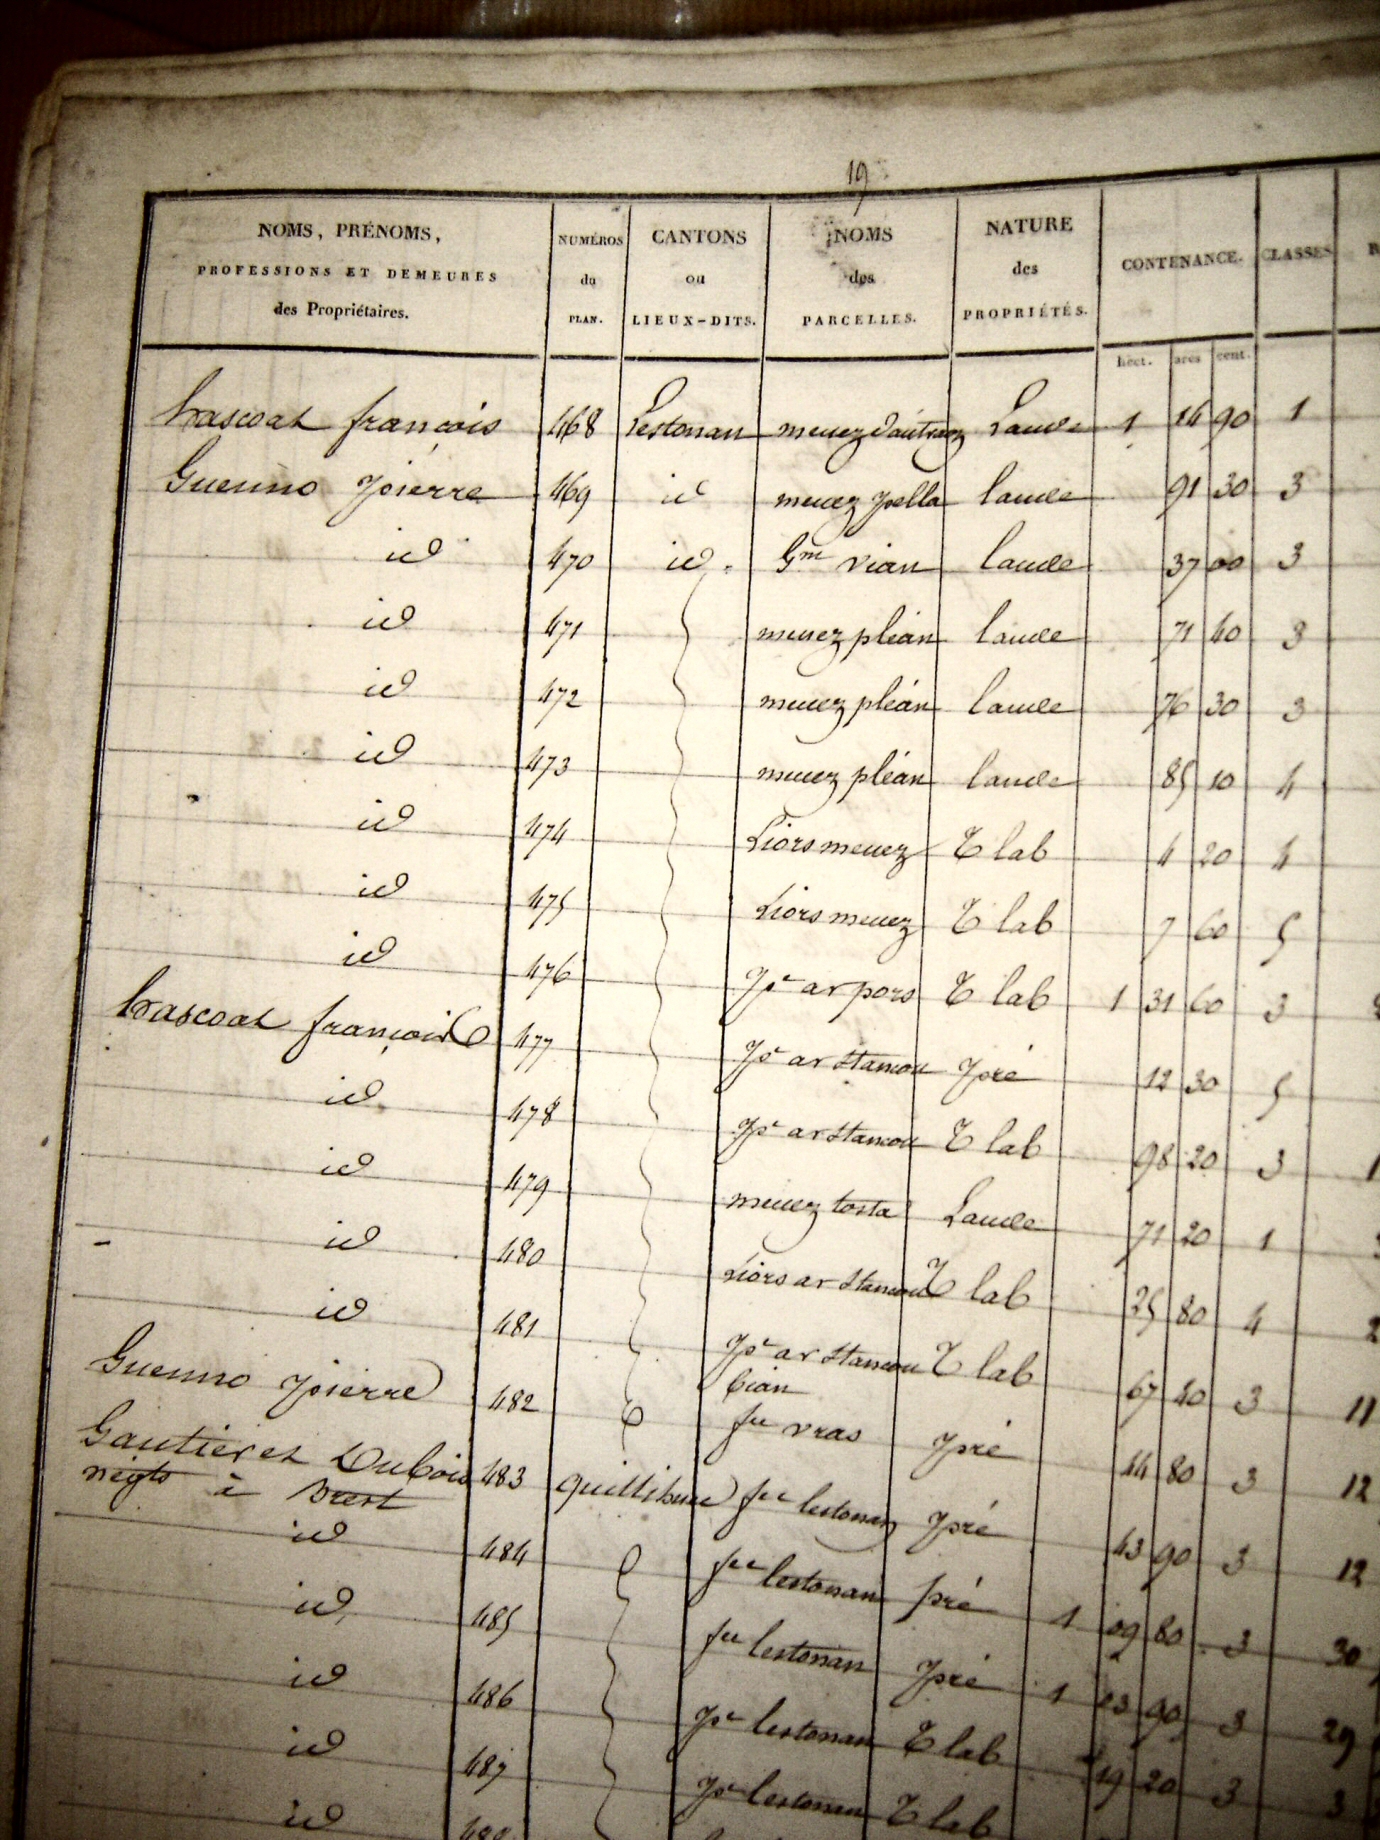 19
NOMS, PRÉNOMS, PROFESSIONS ET DEMEURES des Propriétaires. NUMÉROS du PLAN. CANTONS ou LIEUX-DITS. NOMS des PARCELLES. NATURE des PROPRIÉTÉS. CONTENANCE. CLASSES
hect. ares cent.
hascoat françois 468 Lestonan menez d'autraoz Lande 1 14 90 1
Guenno pierre 469 id menez pella lande 91 30 3
id 470 id. Gm vian lande 37 00 3
id 471 menez pléan lande 71 40 3
id 472 menez pléan lande 76 30 3
id 473 menez pléan lande 85 10 4
id 474 Liors menez T lab 4 20 4
id 475 Liors menez T lab 7 60 5
id 476 pc ar pors T lab 1 31 60 3
hascoat françois 477 pc ar stancou pré 12 30 5
id 478 pc ar stancou T lab 98 20 3
id 479 menez tosta Lande 71 20 1
id 480 Liors ar stancou T lab 25 80 4
id 481 pc ar stancou bian T lab 67 40 3 11
Guenno pierre 482 fee vras pré 44 80 3 12
Gautier et Dubois négts à Brest 483 quillihuec fee lestonan pré 43 90 3 12
id 484 fee lestonan pré 1 09 80 3 30
id 485 fee lestonan pré 1 03 90 3 29
id 486 pc lestonan T lab 19 20 3 3
id 487 pc lestonan T lab
id 488